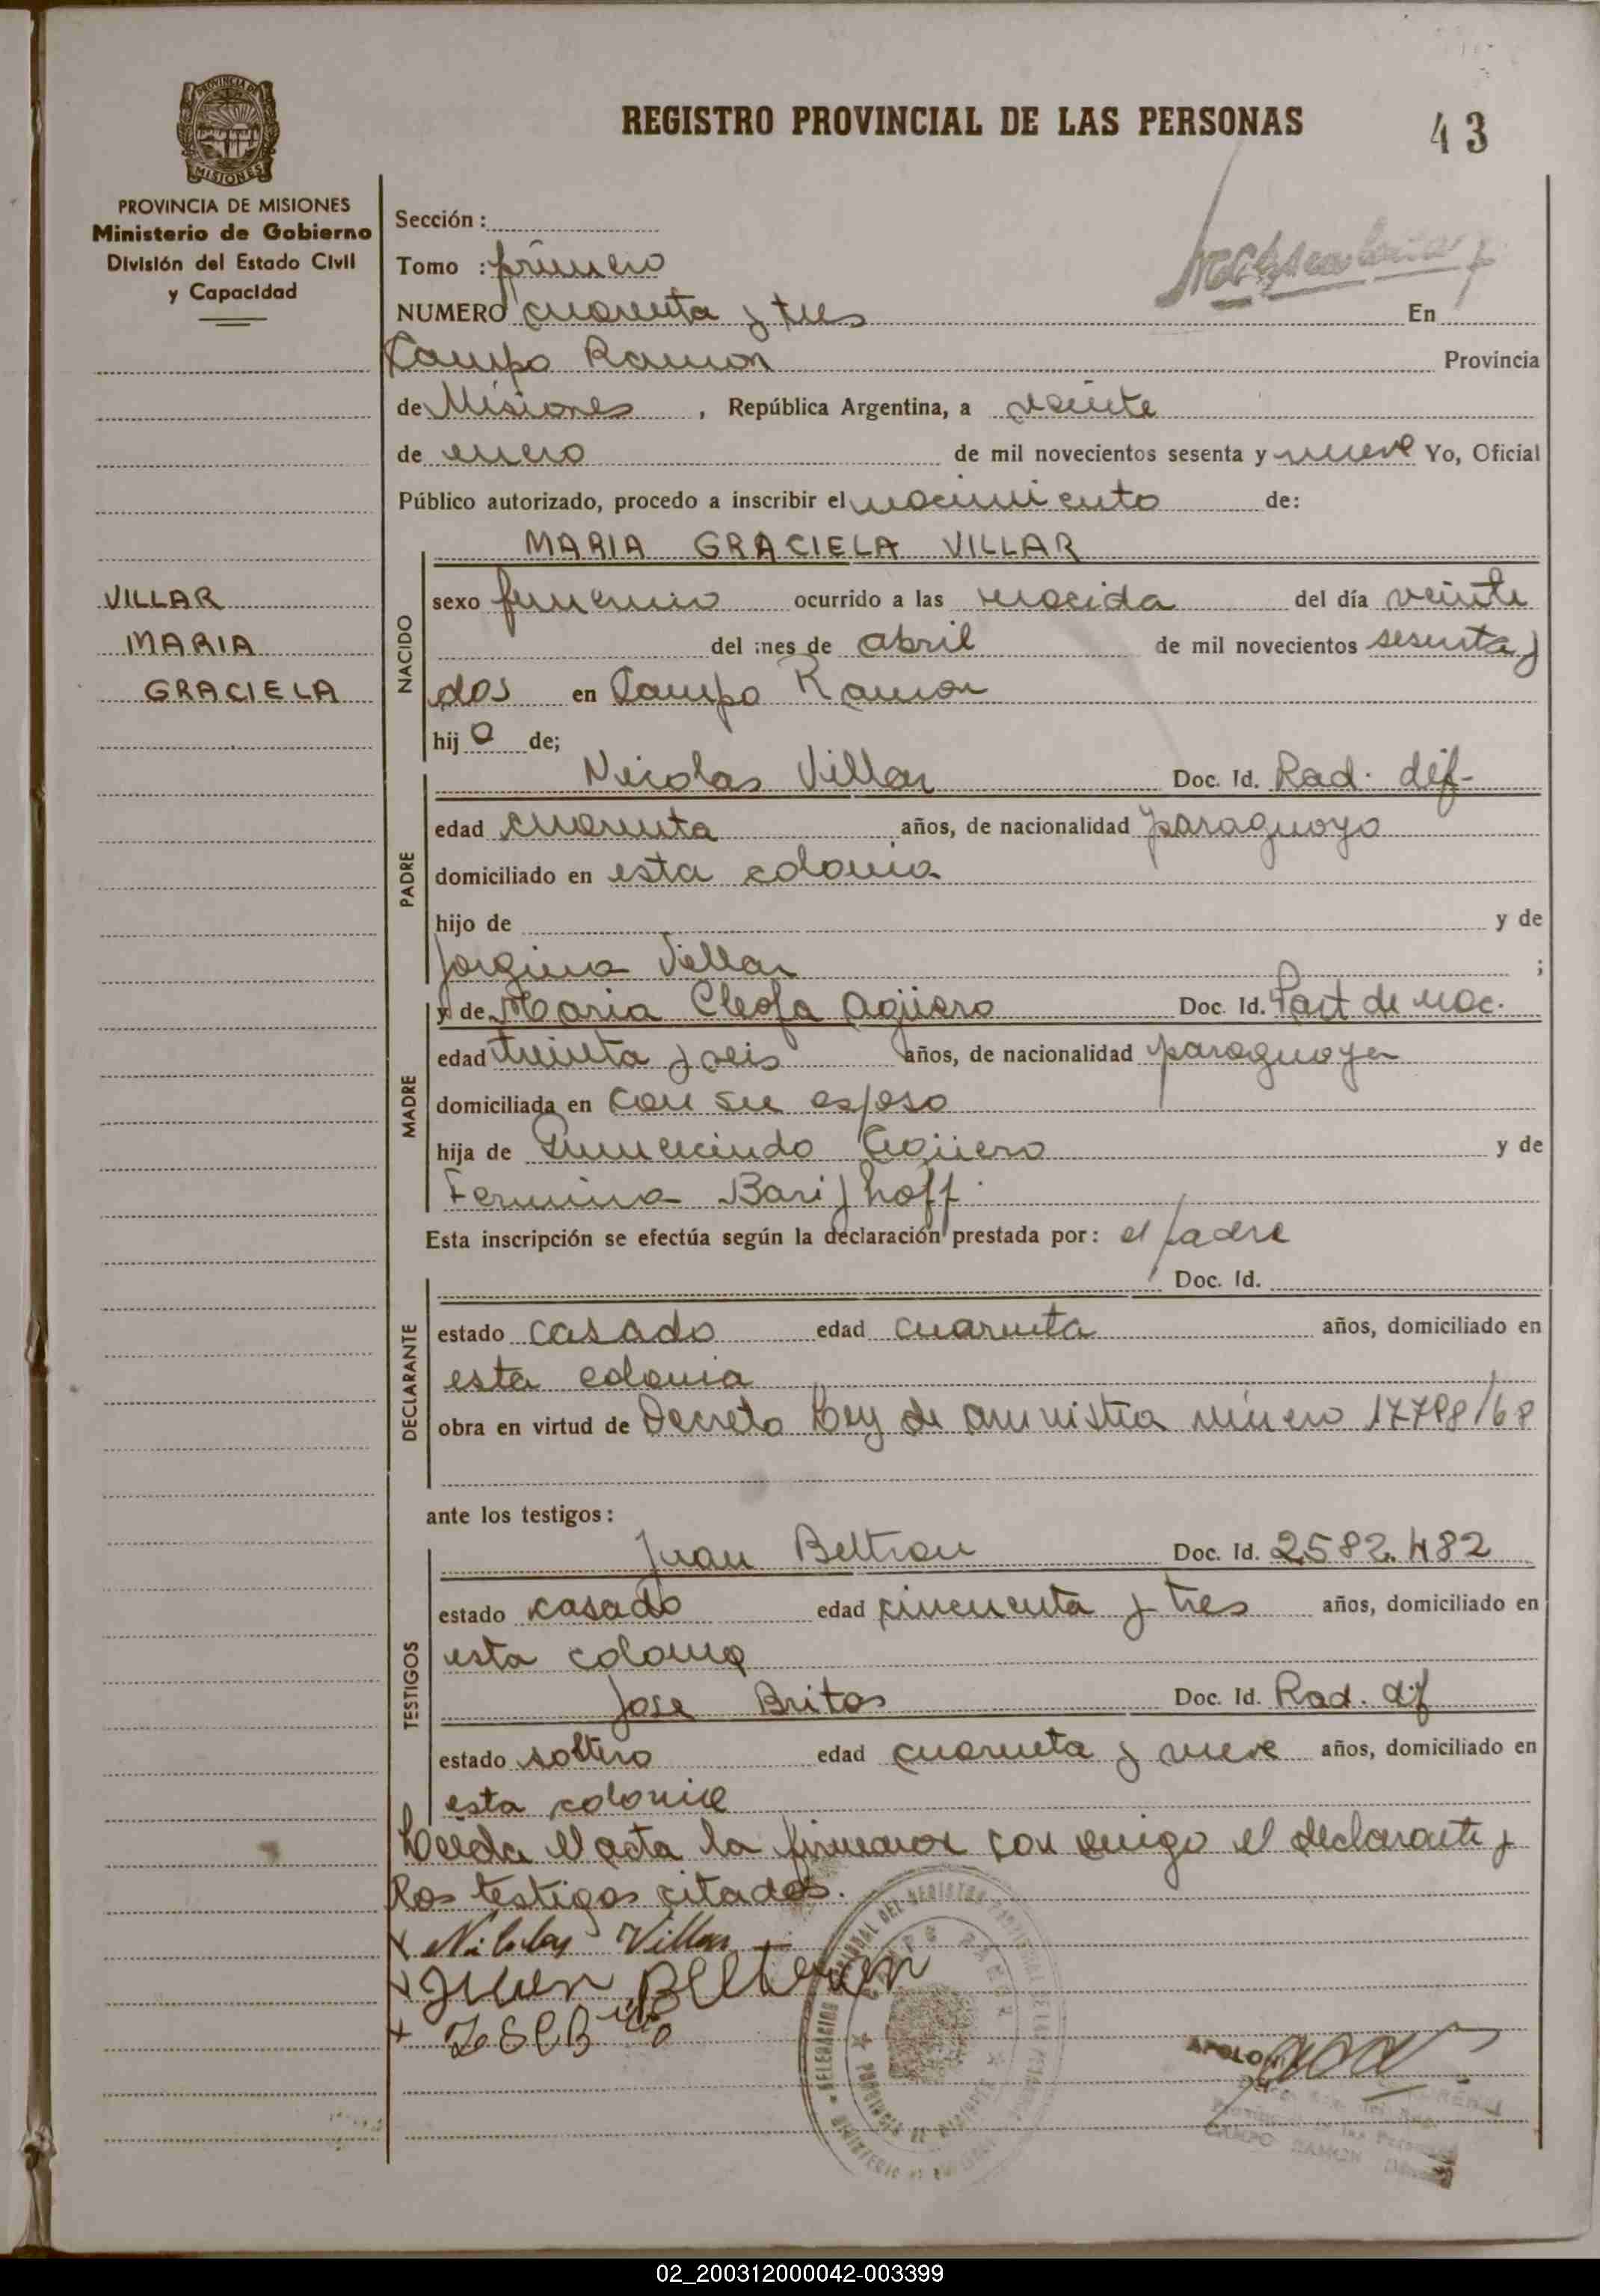 REGISTRO PROVINCIAL DE LAS PERSONAS
43
PROVINCIA DE MISIONES
Ministerio de Gobierno
División del Estado Civil
y Capacidad
Sección :
Tomo : primero
NUMERO cuarenta y tres En
Campo Ramon Provincia
de Misiones , República Argentina, a veinte
de enero de mil novecientos sesenta y nueve Yo, Oficial
Público autorizado, procedo a inscribir el nacimiento de:
MARIA GRACIELA VILLAR
VILLAR
MARIA
GRACIELA
NACIDO
sexo femenino ocurrido a las nacida del día veinte
del mes de abril de mil novecientos sesenta y
dos en Campo Ramon
hij a de;
PADRE
Nicolas Villar Doc. Id. Rad. dif-
edad cuarenta años, de nacionalidad paraguayo
domiciliado en esta colonia
hijo de y de
Jorgina Villar ;
MADRE
y de Maria Cleofa Agüero Doc. Id. Part de nac.
edad treinta y seis años, de nacionalidad paraguaya
domiciliada en con su esposo
hija de Gumecindo Agüero y de
Fermina Barijhoff.
Esta inscripción se efectúa según la declaración prestada por: el padre
DECLARANTE
Doc. Id.
estado casado edad cuarenta años, domiciliado en
esta colonia
obra en virtud de Decreto Ley de amnistia número 17798/68
ante los testigos:
TESTIGOS
Juan Beltran Doc. Id. 2.582.482
estado casado edad cincuenta y tres años, domiciliado en
esta colonia
Jose Britos Doc. Id. Rad. dif
estado soltero edad cuarenta y nueve años, domiciliado en
esta colonia
Leida el acta la firmaron conmigo el declarante y
los testigos citados.
x Nicolas Villar
x Juan Beltran
x
CAMPO RAMON
02_200312000042-003399